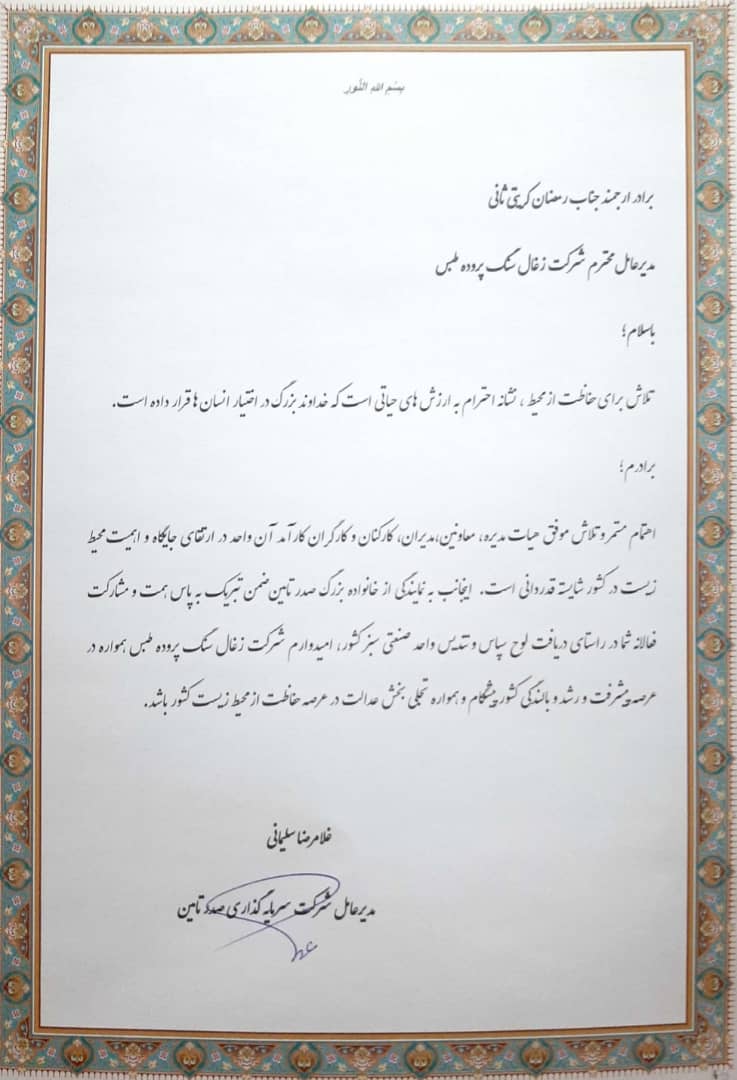 بِسْمِ اللهِ النُّور
برادر ارجمند جناب رمضان کریتی ثانی
مدیرعامل محترم شرکت زغال سنگ پروده طبس
باسلام؛
تلاش برای حفاظت از محیط ، نشانه احترام به ارزش های حیاتی است که خداوند بزرگ در اختیار انسان ها قرار داده است.
برادرم؛
اهتمام مستمر و تلاش موفق هیات مدیره، معاونین،مدیران، کارکنان و کارگران کارآمد آن واحد در ارتقای جایگاه و اهمیت محیط
زیست در کشور شایسته قدردانی است. اینجانب به نمایندگی از خانواده بزرگ صدر تامین ضمن تبریک به پاس همت و مشارکت
فعالانه شما در راستای دریافت لوح سپاس و تندیس واحد صنعتی سبز کشور، امیدوارم شرکت زغال سنگ پروده طبس همواره در
عرصه پیشرفت و رشد و بالندگی کشور پیشگام و همواره تجلی بخش عدالت در عرصه حفاظت از محیط زیست کشور باشد.
غلامرضا سلیمانی
مدیرعامل شرکت سرمایه گذاری صدر تامین